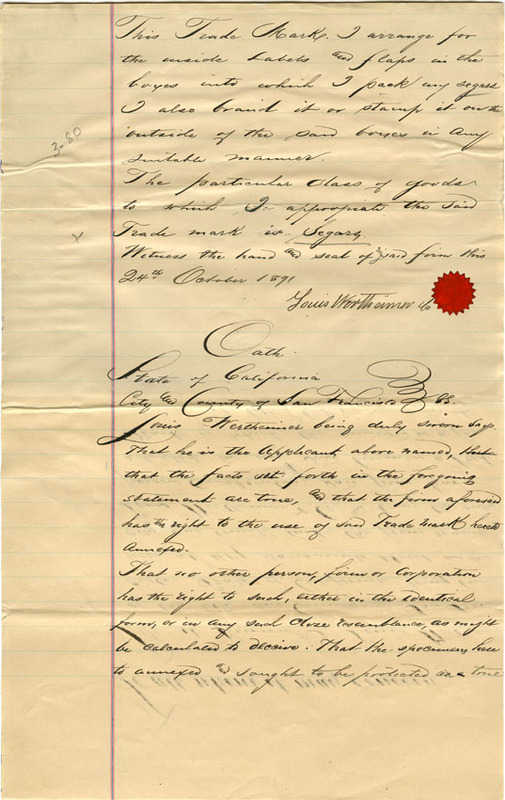 This Trade Mark, I arrange for
the inside Labels and flaps in the
boxes into which I pack my segars
I also brand it or stamp it on the
outside of the said boxes in any
suitable manner.
3-80
The particular Class of goods
to which I appropriate the said
Trade mark is Segars,
x
Witness the hand and seal of said firm this
24th October 1891
Louis Wertheimer Co
Oath.
State of California
City and County of San Francisco SS.
Louis Wertheimer being duly sworn says
That he is the Applicant above named, that
that the facts set forth in the forgoing
statement are true, and that the firm aforesaid
has the right to the use of said Trade Mark hereto
annexed.
That no other person, firm or Corporation
has the right to such, either in the identical
form, or in any such Close resemblance, as might
be calculated to deceive. That the specimens here
to annexed and sought to be protected are true